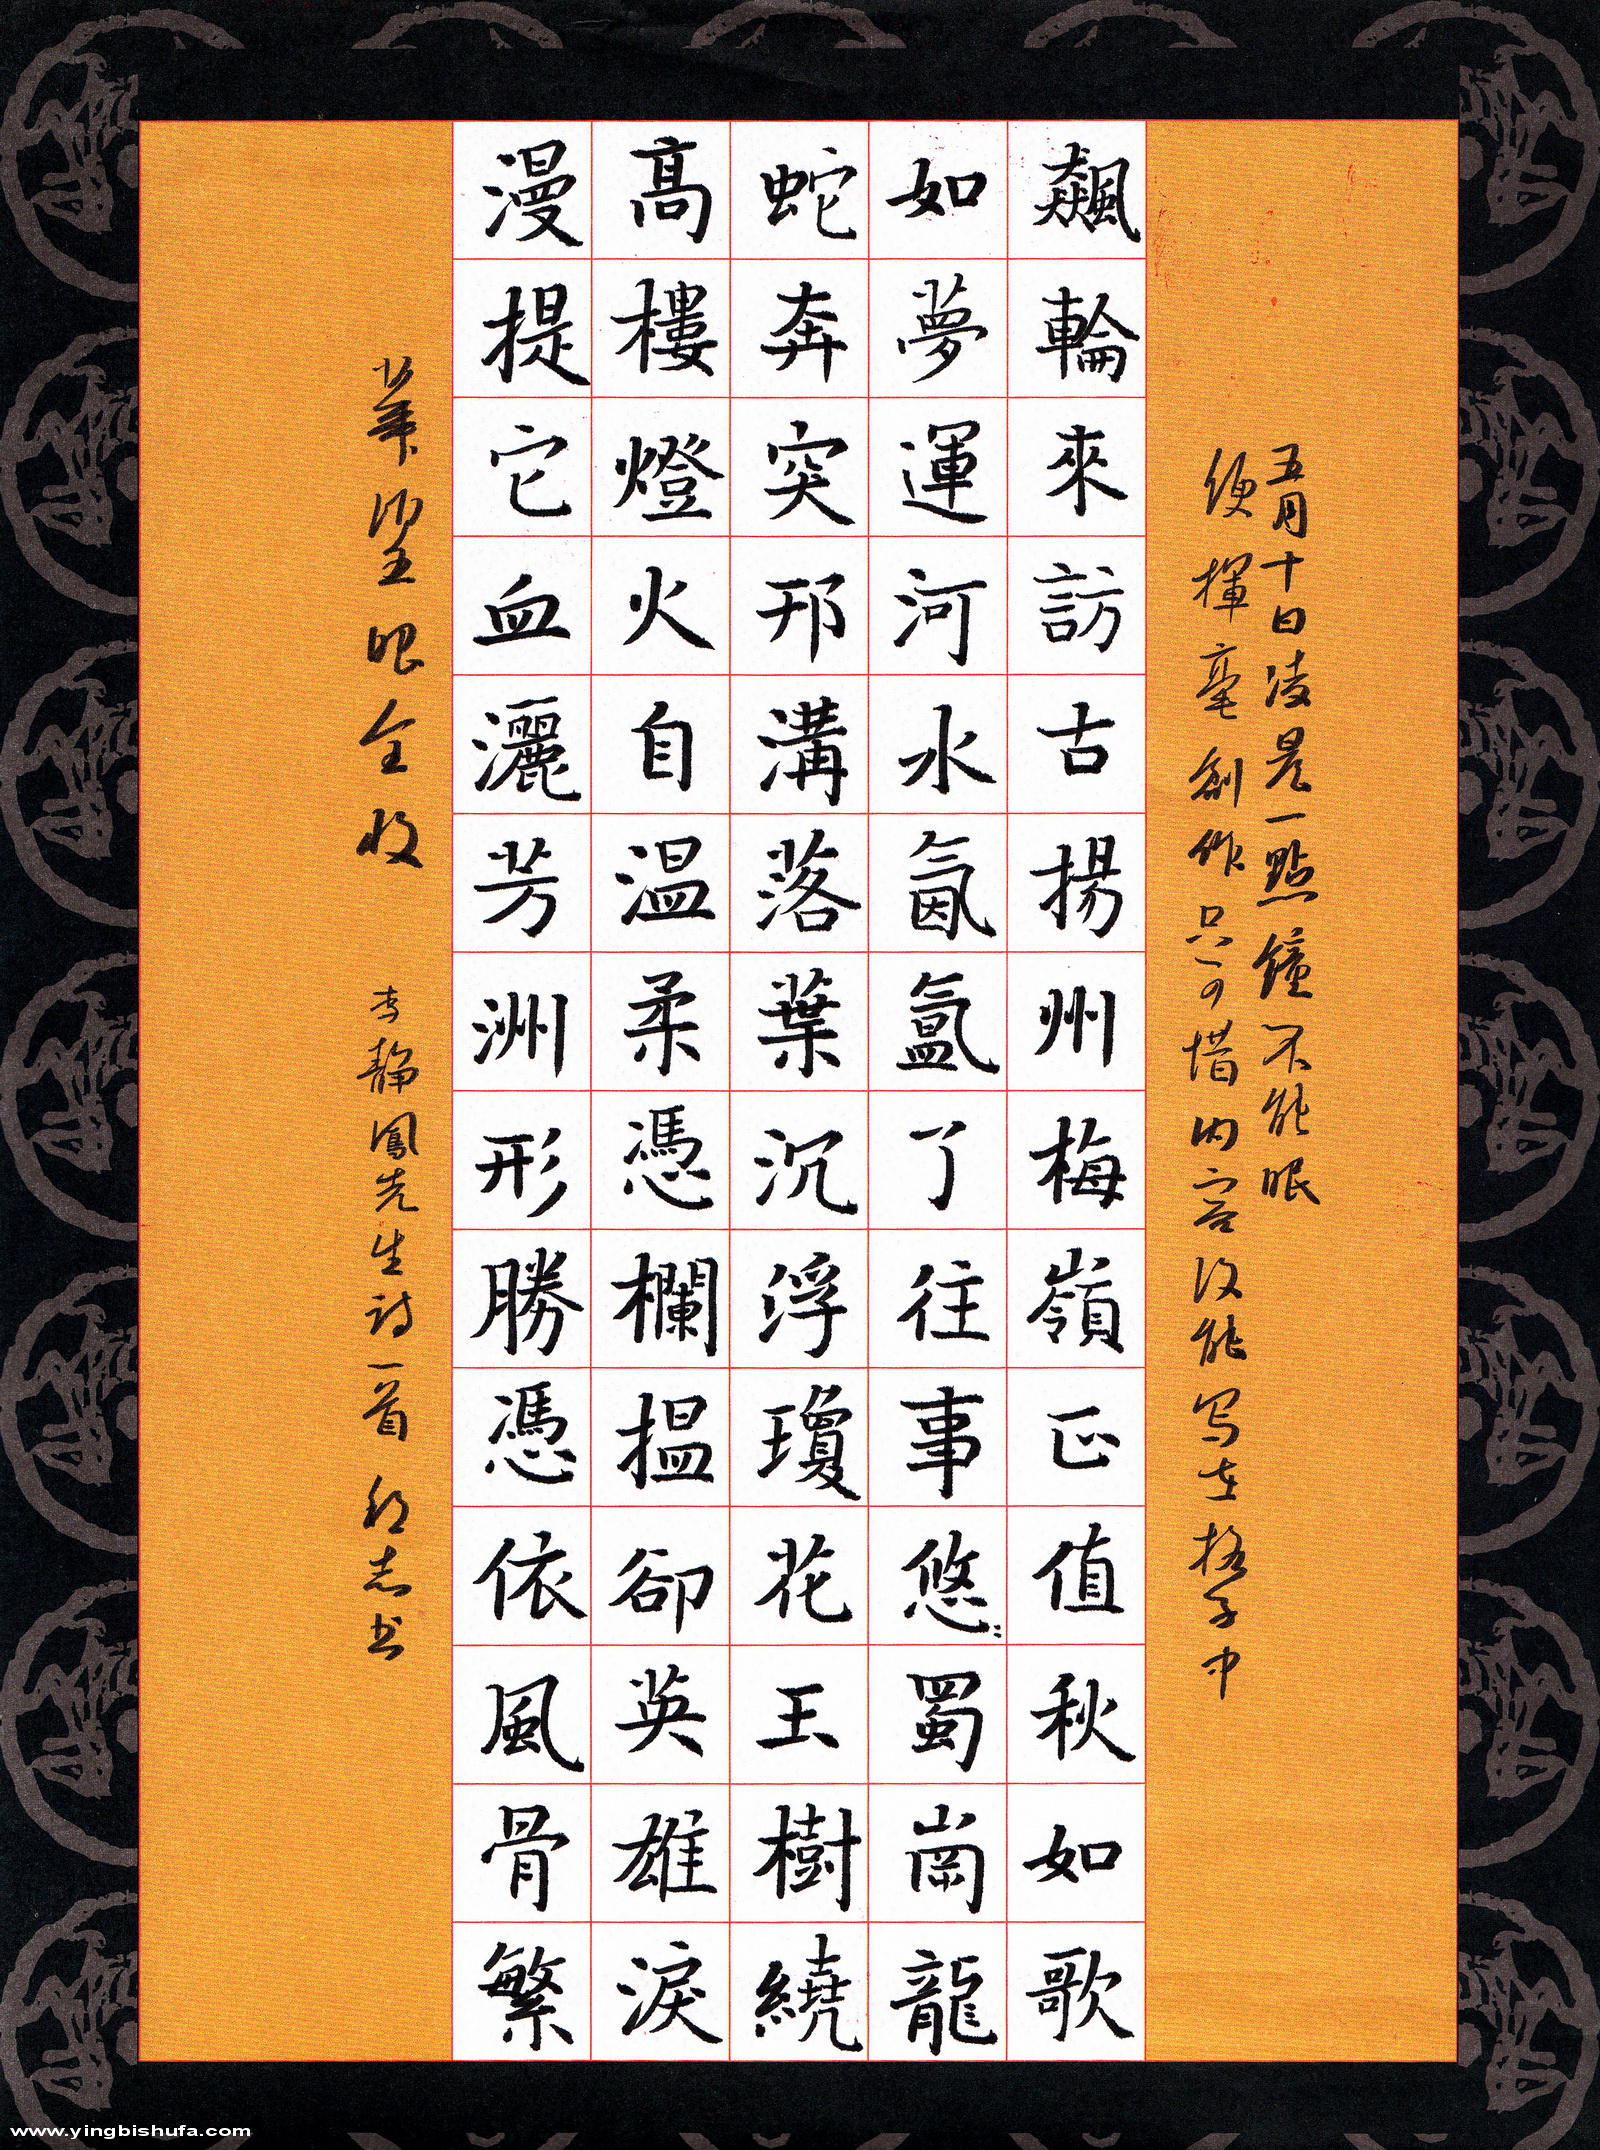 五月十日凌晨一點鐘不能眠
便揮毫創作只可惜内容没能写在格子中
飆輪來訪古揚州梅嶺正值秋如歌
如夢運河水氤氳了往事悠〻蜀崗龍
蛇奔突邗溝落葉沉浮瓊花玉樹繞
高樓燈火自温柔憑欄揾卻英雄淚
漫提它血灑芳洲形勝憑依風骨繁
華望眼全收 李靜鳳先生诗一首 志书
www.yingbishufa.com